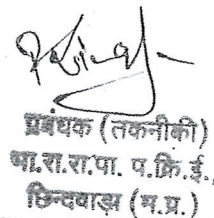 प्रबंधक (तकनीकी)
भा.रा.रा.प्रा. प.क्रि.ई.,
छिन्दवाड़ा (म.प्र.)